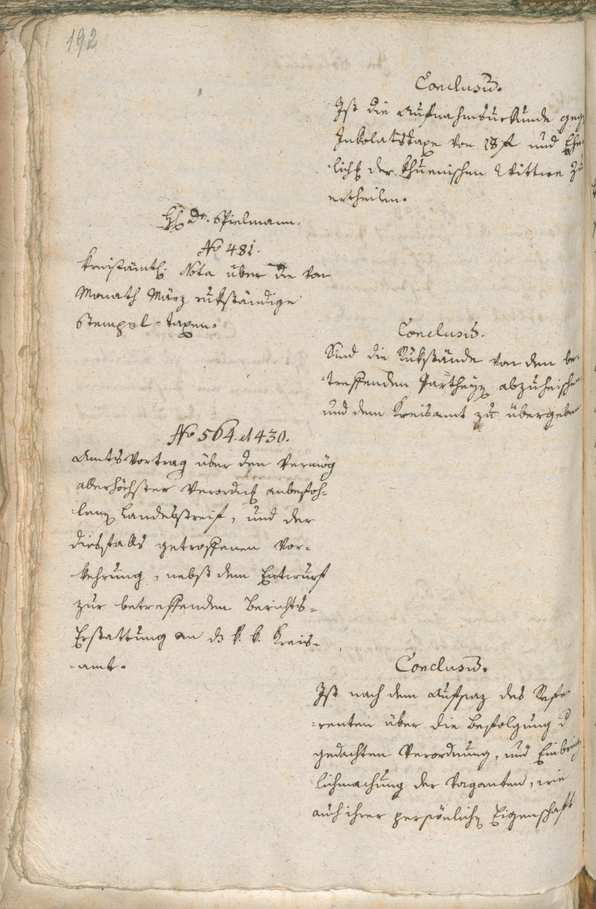 192
Conclusum.
Ist die Aufnahmsurkunde geg
Inkolatstaxe von 18 f. und
licht der Khuenischen Wittwe zu
ertheilen.
H. Dr. Spielmann.
No 481.
kreisämtl. Nota über die von
Monath März rükständige
Stempel-taxen.
Conclusum.
Sind die Rükstände von den be-
treffenden Partheyen abzuheischen
und dem Kreisamt zu übergeben
No 564. et 430.
Amtsvortrag über den Vermög
allerhöchster Verordng anbefoh-
lenen Landesstreif, und der
diesfalls getroffenen Vor-
kehrung, nebst dem Entwurf
zur betreffenden Berichts-
Erstattung an d. k. k. Kreis-
amt.
Conclusum.
Ist nach dem Aufsaz des Refe-
renten über die Befolgung d
gedachten Verordnung, und Einbring
lichmachung der Vaganten, wie
auch ihrer persönlichen Eigenschaft